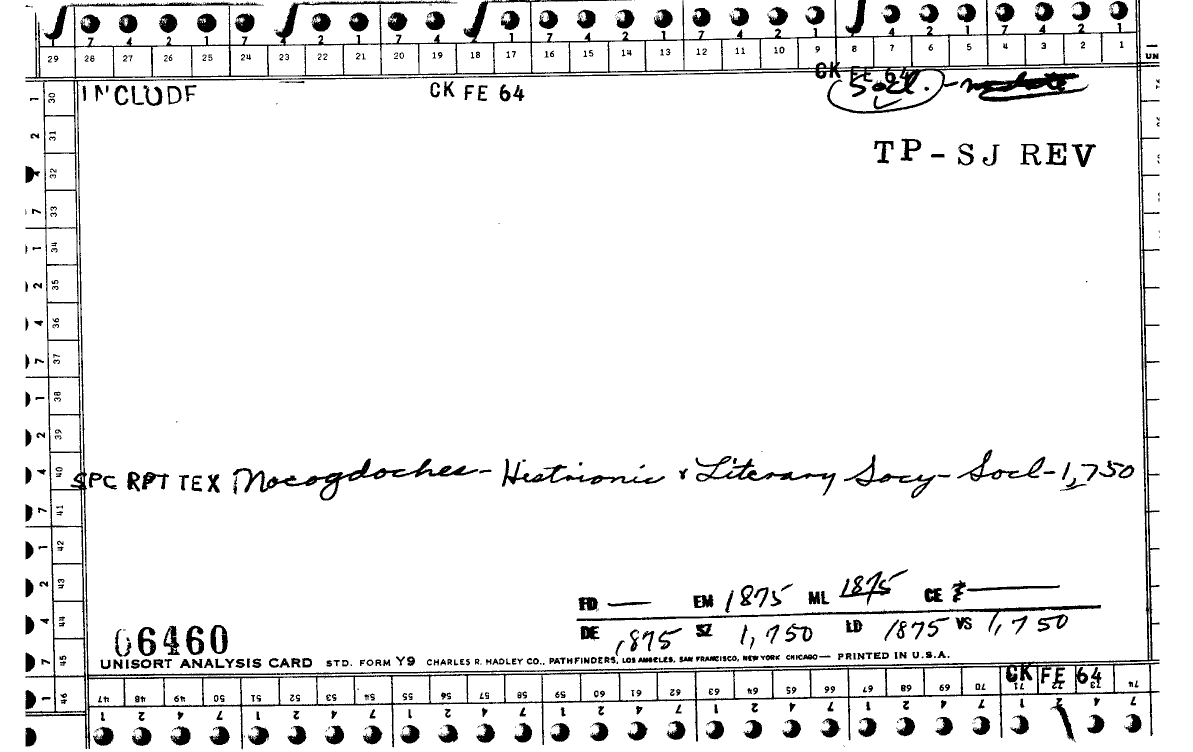 7 4 2 1 7 4 2 1 7 4 2 1 7 4 2 1 7 4 2 1 7 4 2 1
29 28 27 26 25 24 23 22 21 20 19 18 17 16 15 14 13 12 11 10 9 8 7 6 5 4 3 2 1
INCLUDE CK FE 64 CK FE 64
Socl.
TP-SJ REV
1 30
2 31
4 32
7 33
1 34
2 35
4 36
7 37
1 38
2 39
4 40
SPC RPT TEX Nocogdoches - Histrionic & Literary Socy - Socl - 1,750
7 41
1 42
2 43
4 44
7 45
1 46
FD — EM 1875 ML 1875 CE
DE ,875 SZ 1,750 LD 1875 VS 1,750
06460
UNISORT ANALYSIS CARD STD. FORM Y9 CHARLES R. HADLEY CO., PATHFINDERS, LOS ANGELES, SAN FRANCISCO, NEW YORK CHICAGO — PRINTED IN U.S.A.
CK FE 64
47 48 49 50 51 52 53 54 55 56 57 58 59 60 61 62 63 64 65 66 67 68 69 70 71 72 73 74
1 2 4 7 1 2 4 7 1 2 4 7 1 2 4 7 1 2 4 7 1 2 4 7 1 2 4 7